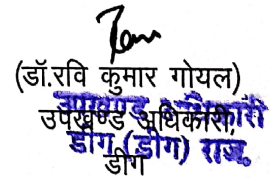 (डॉ.रवि कुमार गोयल)
उपखण्ड अधिकारी,
उपखण्ड अधिकारी
डीग (डीग) राज.
डीग